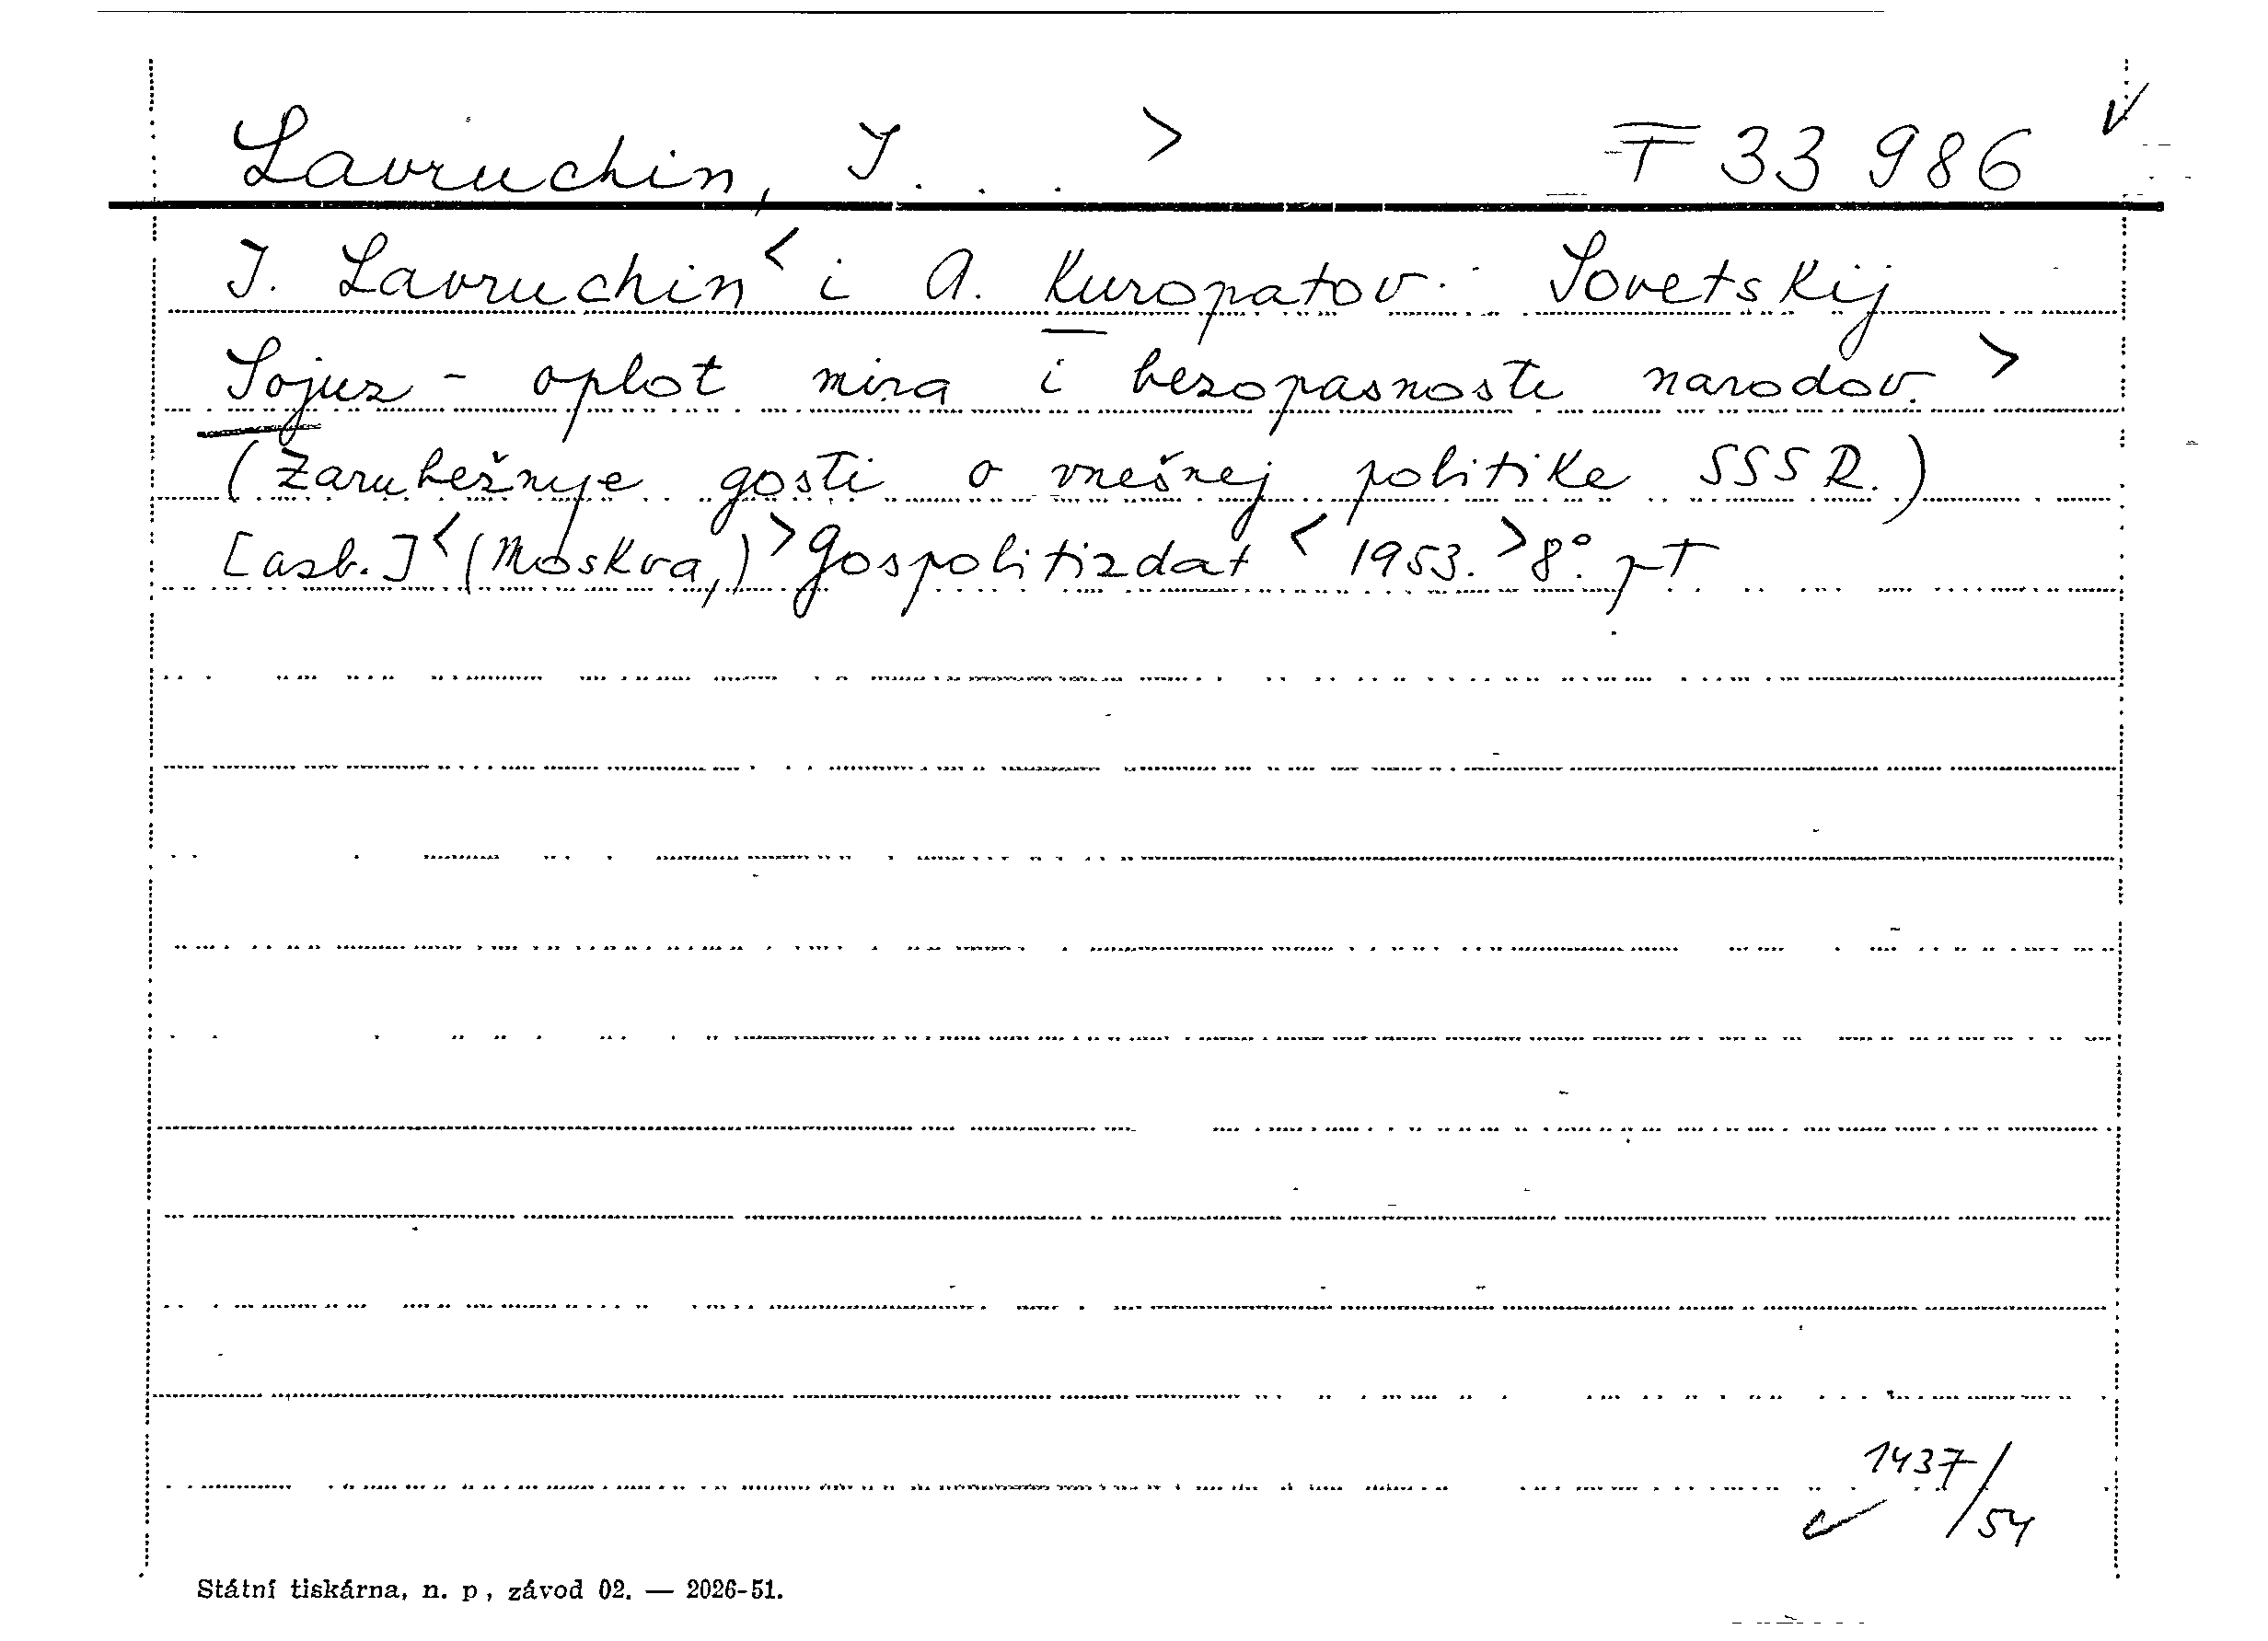 Lavruchin, I . . . > T 33 986
I. Lavruchin < i A. Kuropatov: Sovetskij
Sojuz - oplot mira i bezopasnosti narodov. >
(Zarubežnyje gosti o vnešnej politike SSSR.)
[azb.] < (Moskva,) > Gospolitizdat < 1953. > 8°. pT
1437/54
Státní tiskárna, n. p, závod 02. — 2026-51.